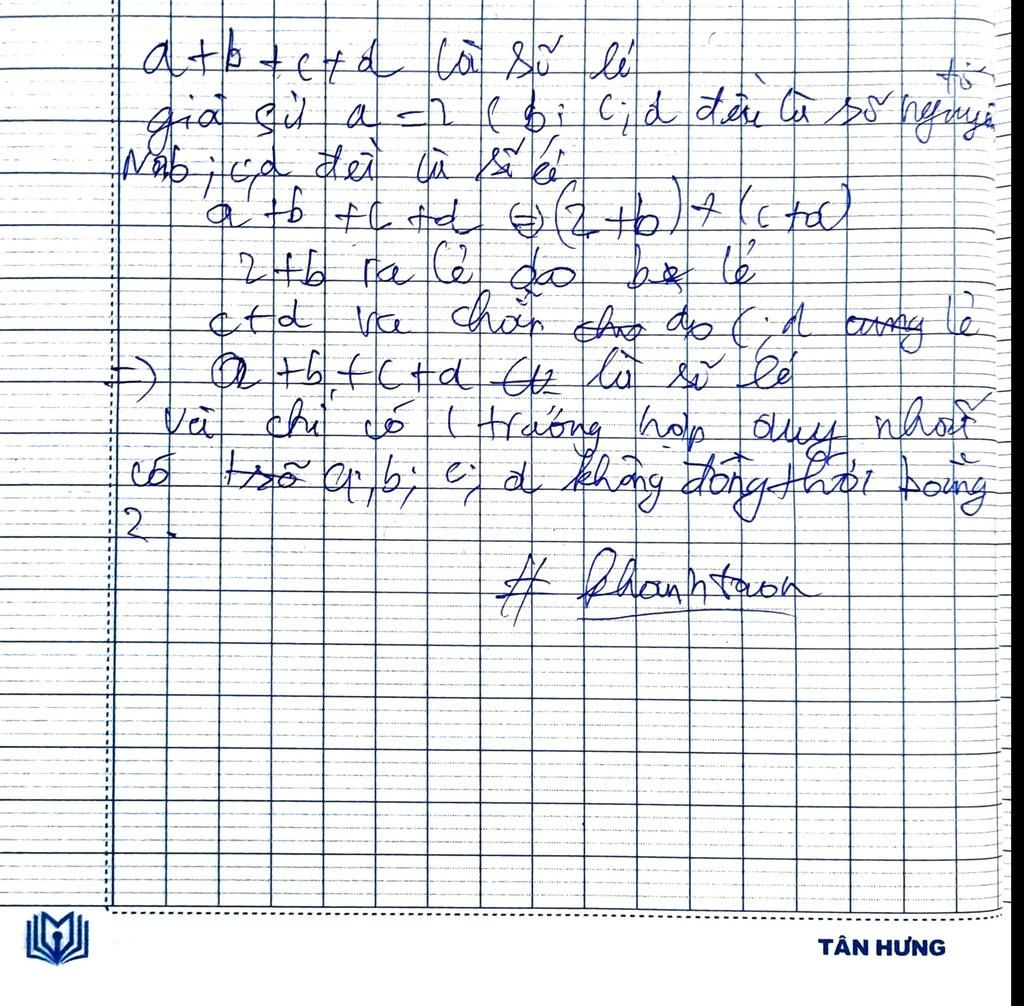 a+b+c+d là số lẻ
giả sử a=2 ( b; c; d đều là số nguyê tố
b; c; d đều là số lẻ
a+b+c+d ⇔ (2+b)+(c+d)
2+b ra lẻ do b lẻ
c+d ra chẵn do c; d cung lẻ
=> a+b+c+d là số lẻ
và chỉ có 1 trường hợp duy nhất
có a; b; c; d không đồng thời bằng
2.
#
TÂN HƯNG